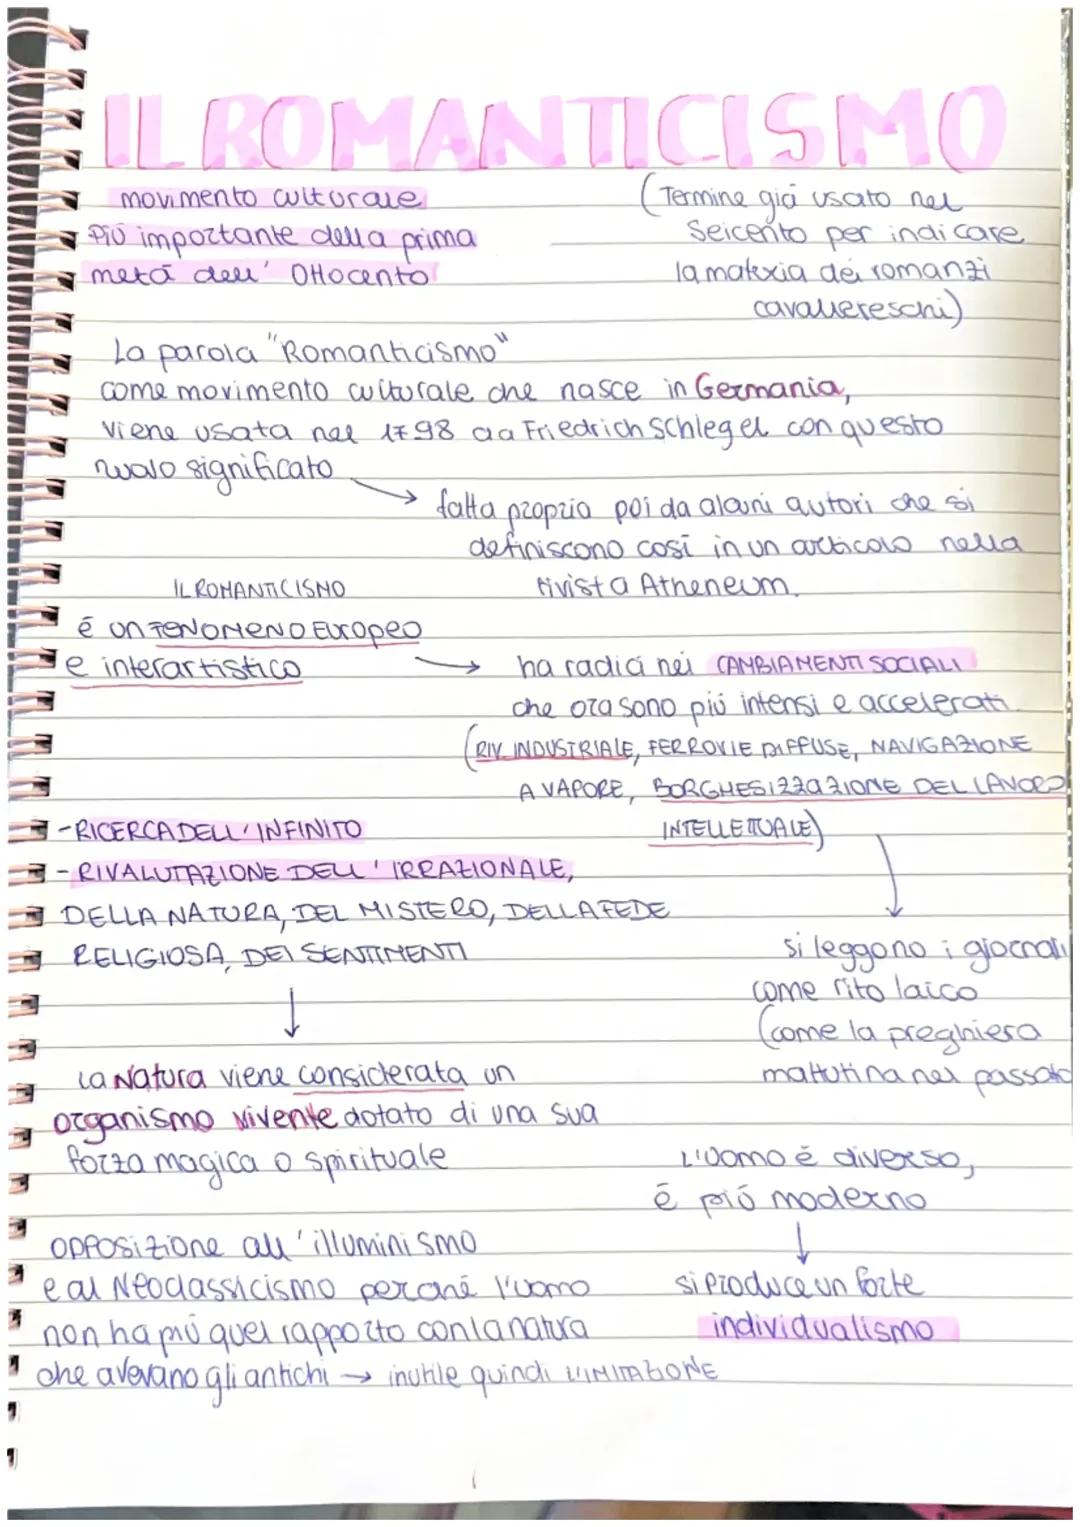 IL ROMANTICISMO
movimento culturale
più importante della prima
metà dell' Ottocento
(Termine già usato nel
Seicento per indicare
la materia dei romanzi
cavallereschi)
La parola "Romanticismo"
come movimento culturale che nasce in Germania,
viene usata nel 1798 da Friedrich Schlegel con questo
nuovo significato
fatta propria poi da alcuni autori che si
definiscono così in un articolo nella
rivista Atheneum.
IL ROMANTICISMO
é un FENOMENO Europeo
e interartistico
ha radici nei CAMBIAMENTI SOCIALI
che ora sono più intensi e accelerati
(RIV. INDUSTRIALE, FERROVIE DIFFUSE, NAVIGAZIONE
A VAPORE, BORGHESIZZAZIONE DEL LAVORO
INTELLETTUALE)
-RICERCA DELL'INFINITO
- RIVALUTAZIONE DELL' IRRAZIONALE,
DELLA NATURA, DEL MISTERO, DELLA FEDE
RELIGIOSA, DEI SENTIMENTI
si leggono i giornali
come rito laico
(come la preghiera
mattutina nel passato
La Natura viene considerata un
organismo vivente dotato di una sua
forza magica o spirituale
L'uomo é diverso,
é più moderno
si produce un forte
individualismo
opposizione all'illuminismo
e al Neoclassicismo perché l'uomo
non ha più quel rapporto con la natura
che avevano gli antichi → inutile quindi L'IMITAZIONE